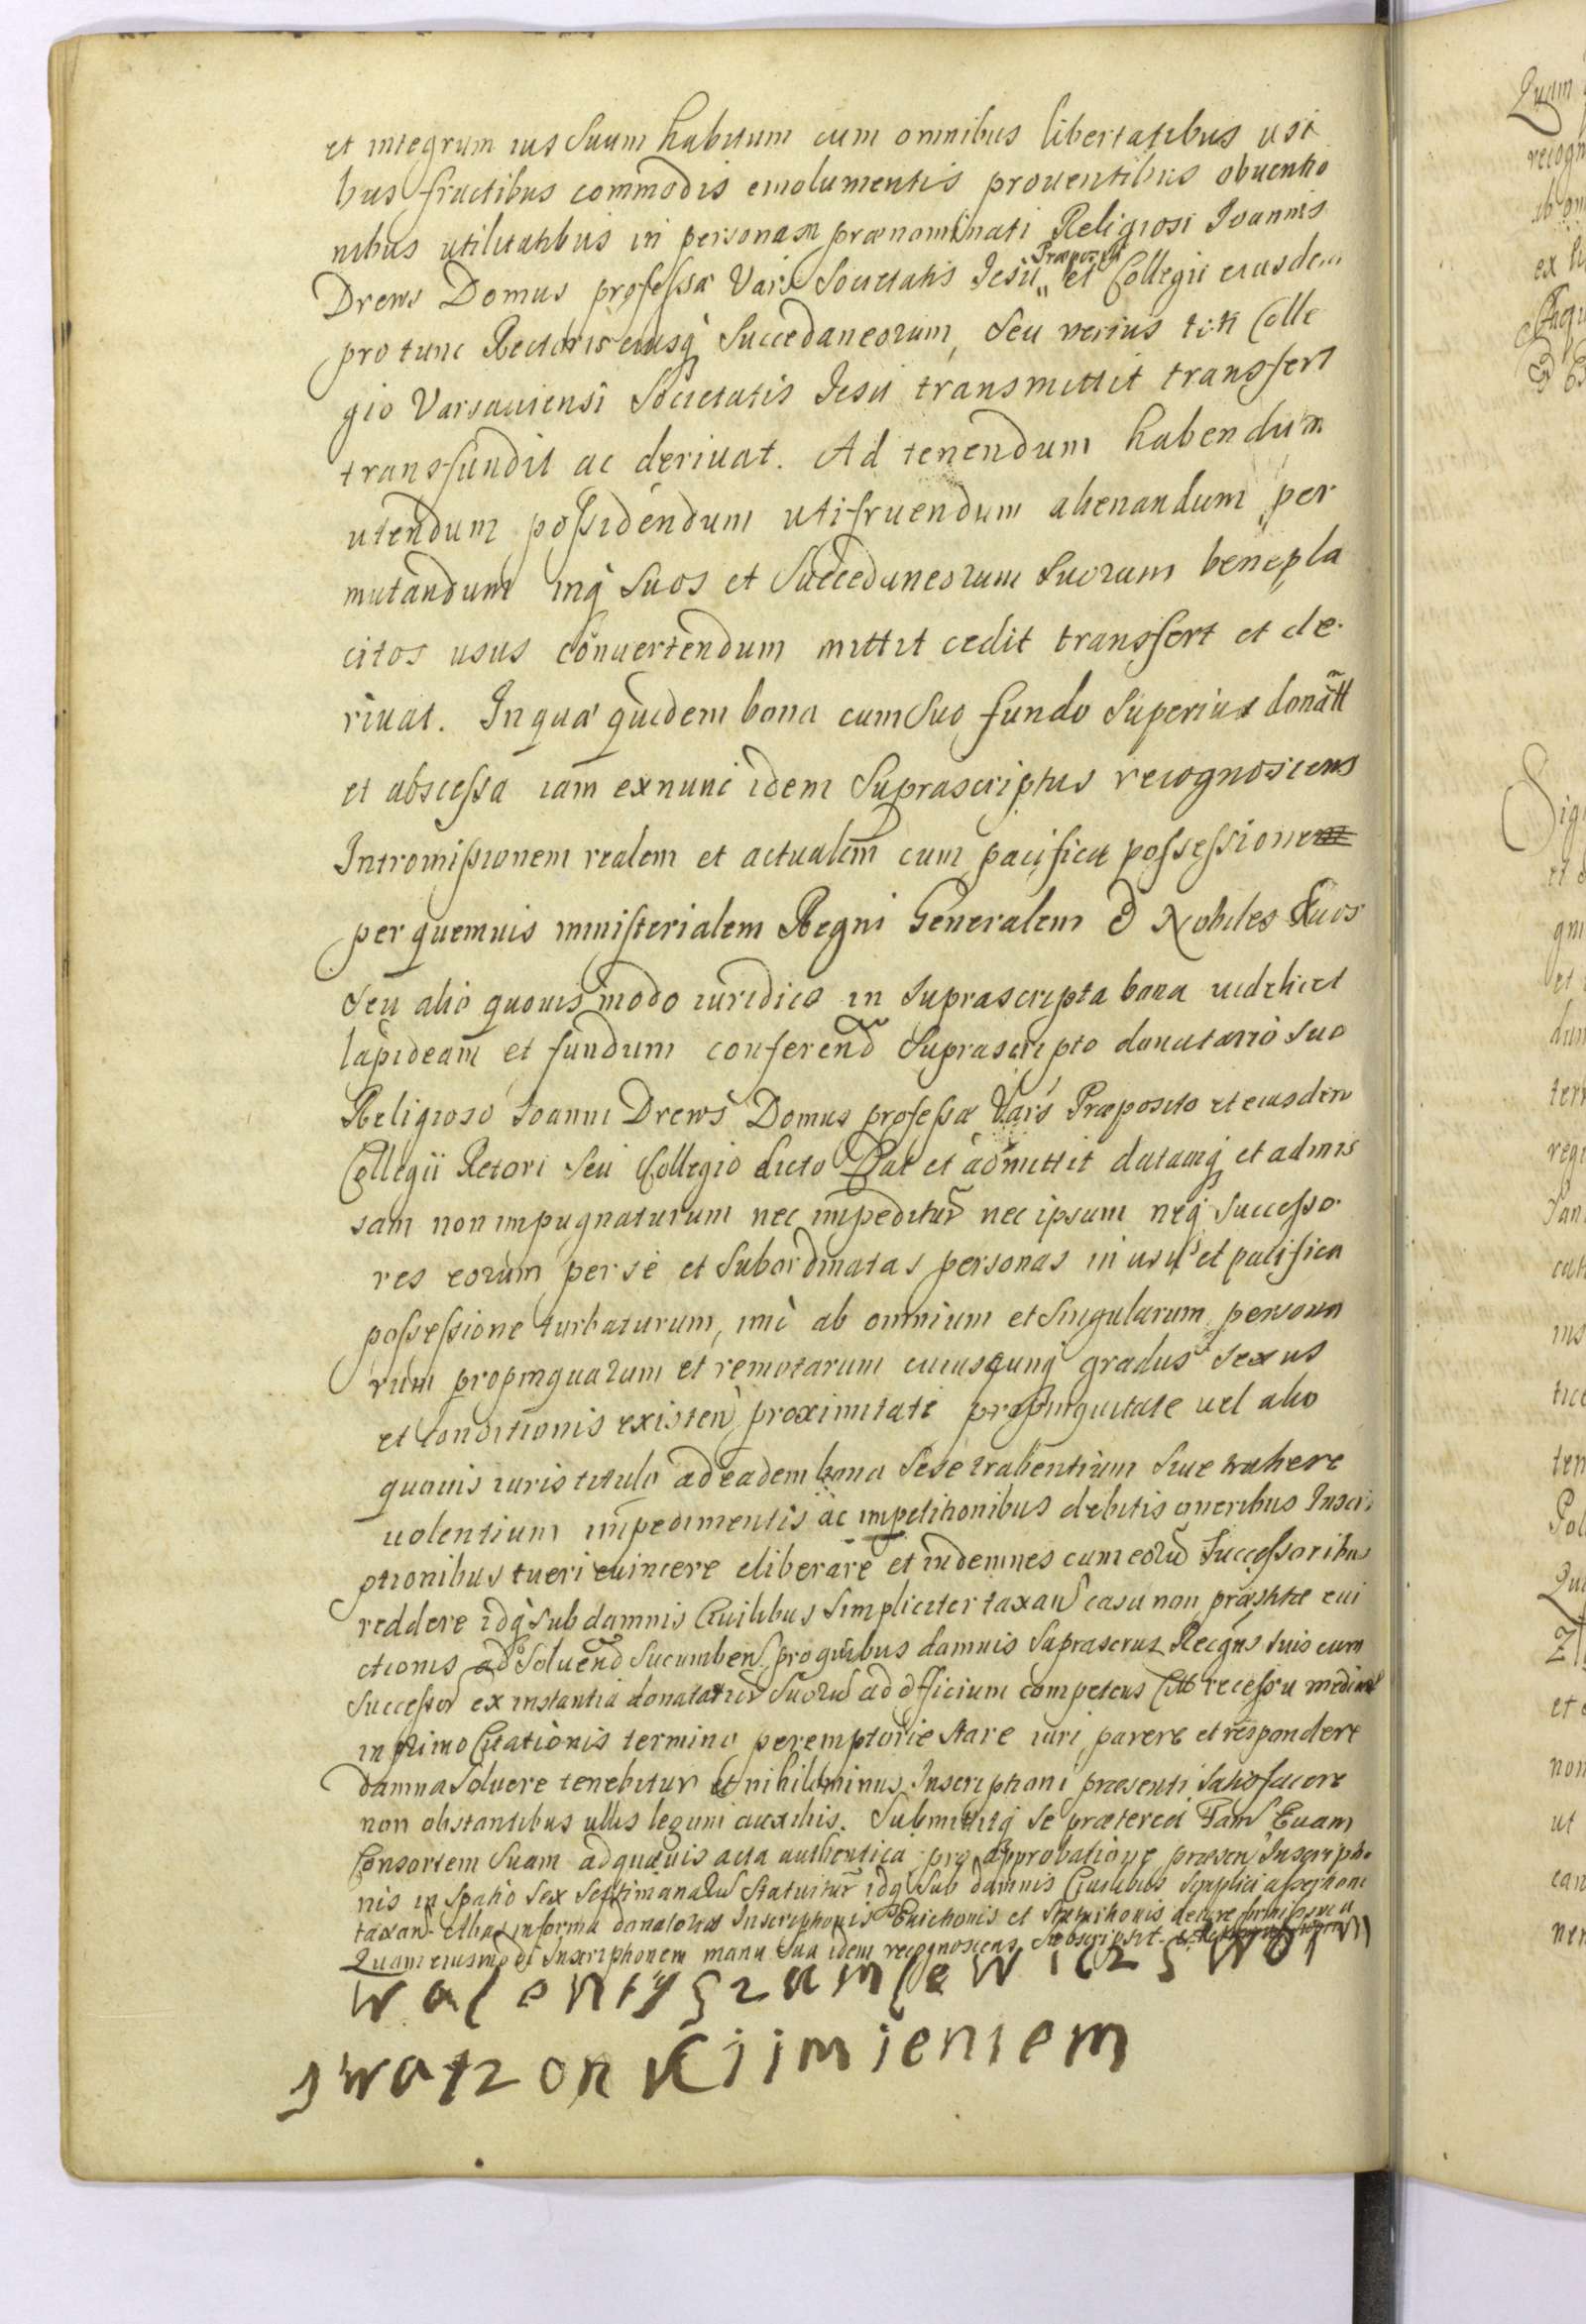 et integrum ius Suum habitum cum omnibus libertatibus usi
bus fructibus commodis emolumentis prouentibus obuentio
nibus utilitatibus in personam prænominati Religiosi Joannis
Præpositi
Drews Domus professæ Vars Societatis Jesu„ et Collegii eiusdem
pro tunc Rectoris eiusq Succedaneorum, Seu verius toti Colle
gio Varsauiensi Societatis Jesu transmittit transfert
transfundit ac deriuat. Ad tenendum habendum
utendum possidendum utifruendum alienandum per
mutandum inq Suos et Succedaneorum Suorum benepla
citos usus conuertendum mittit cedit transfert et de
riuat. In qua quidem bona cum Suo fundo Superius donatt
et abscessa iam exnunc idem Suprascriptus recognoscens
Intromissionem realem et actualem cum pacifica possessione
per quemuis ministerialem Regni Generalem & Nobiles duos
Seu alio quouis modo iuridico in Suprascripta bona uidelicet
lapideam et fundum conferend Suprascripto donatario suo
Religioso Joanni Drews Domus professæ Vars Præposito et eiusdem
Collegii Retori Seu Collegio dicto Dat et admittit datamq et admis
sam non impugnaturum nec impeditur nec ipsum neq Successo
res eorum per se et Subordinatas personas in usu et pacifica
possessione turbaturum, imo ab omnium et Singularum persona
rum propinquarum et remotarum cuiuscunq gradus sexus
et conditionis existen proximitate propinquitate uel alio
quouis iuris titulo ad eadem bona Sese trahentium Siue trahere
uolentium impedimentis ac impetitionibus debitis oneribus Inscri
ptionibus tueri euincere eliberare et indemnes cum eorum Successoribus
reddere idq Sub damnis Ciuilibus Simpliciter taxan casu non præstitæ eui
ctionis ad Soluend Sucumben pro quibus damnis Suprascrus Recgns suis cum
Successor ex instantia donatarior Suoru ad officium competens Citt recessu mediant
in primo Citationis termino peremptorie Stare iuri parere et respondere
damna Soluere tenebitur et nihilominus Inscriptioni præsenti Satisfacere
non obstantibus ullis legum auxiliis. Submittitq Se præterea Fam Euam
Consortem Suam ad quæuis acta authentica pro approbatione præsen Inscriptio
nis in Spatio Sex Septimanaru Statuitur idq Sub damnis Ciuilibus Simplici assertione
taxan Alias informa donatorias Inscriptionis Euictionis et
Quam eiusmodi Inscriptionem manu Sua idem recognoscens Subscripsit
walentyszumlewiczswoim
swatzonkiimieniem